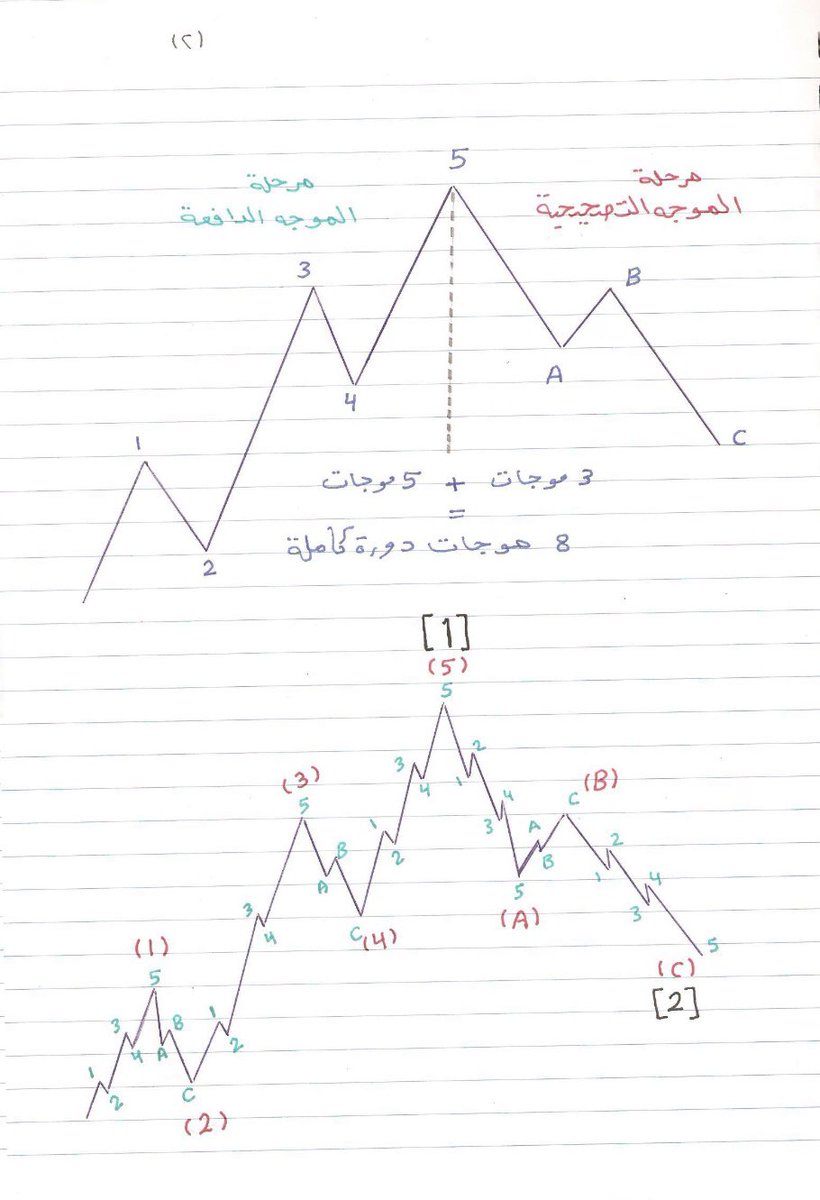 (٢)
5
مرحلة
الموجه التصحيحية
مرحلة
الموجه الدافعة
3
B
A
4
1
C
2
3 موجات + 5 موجات
=
8 موجات دورة كاملة
[1]
(5)
5
2
3
1
4
(3)
5
4
3
C
(B)
1
2
B
A
A
B
5
(A)
C
(4)
2
1
4
3
5
(C)
[2]
3
4
(1)
5
3
B
4
A
1
2
C
(2)
1
2